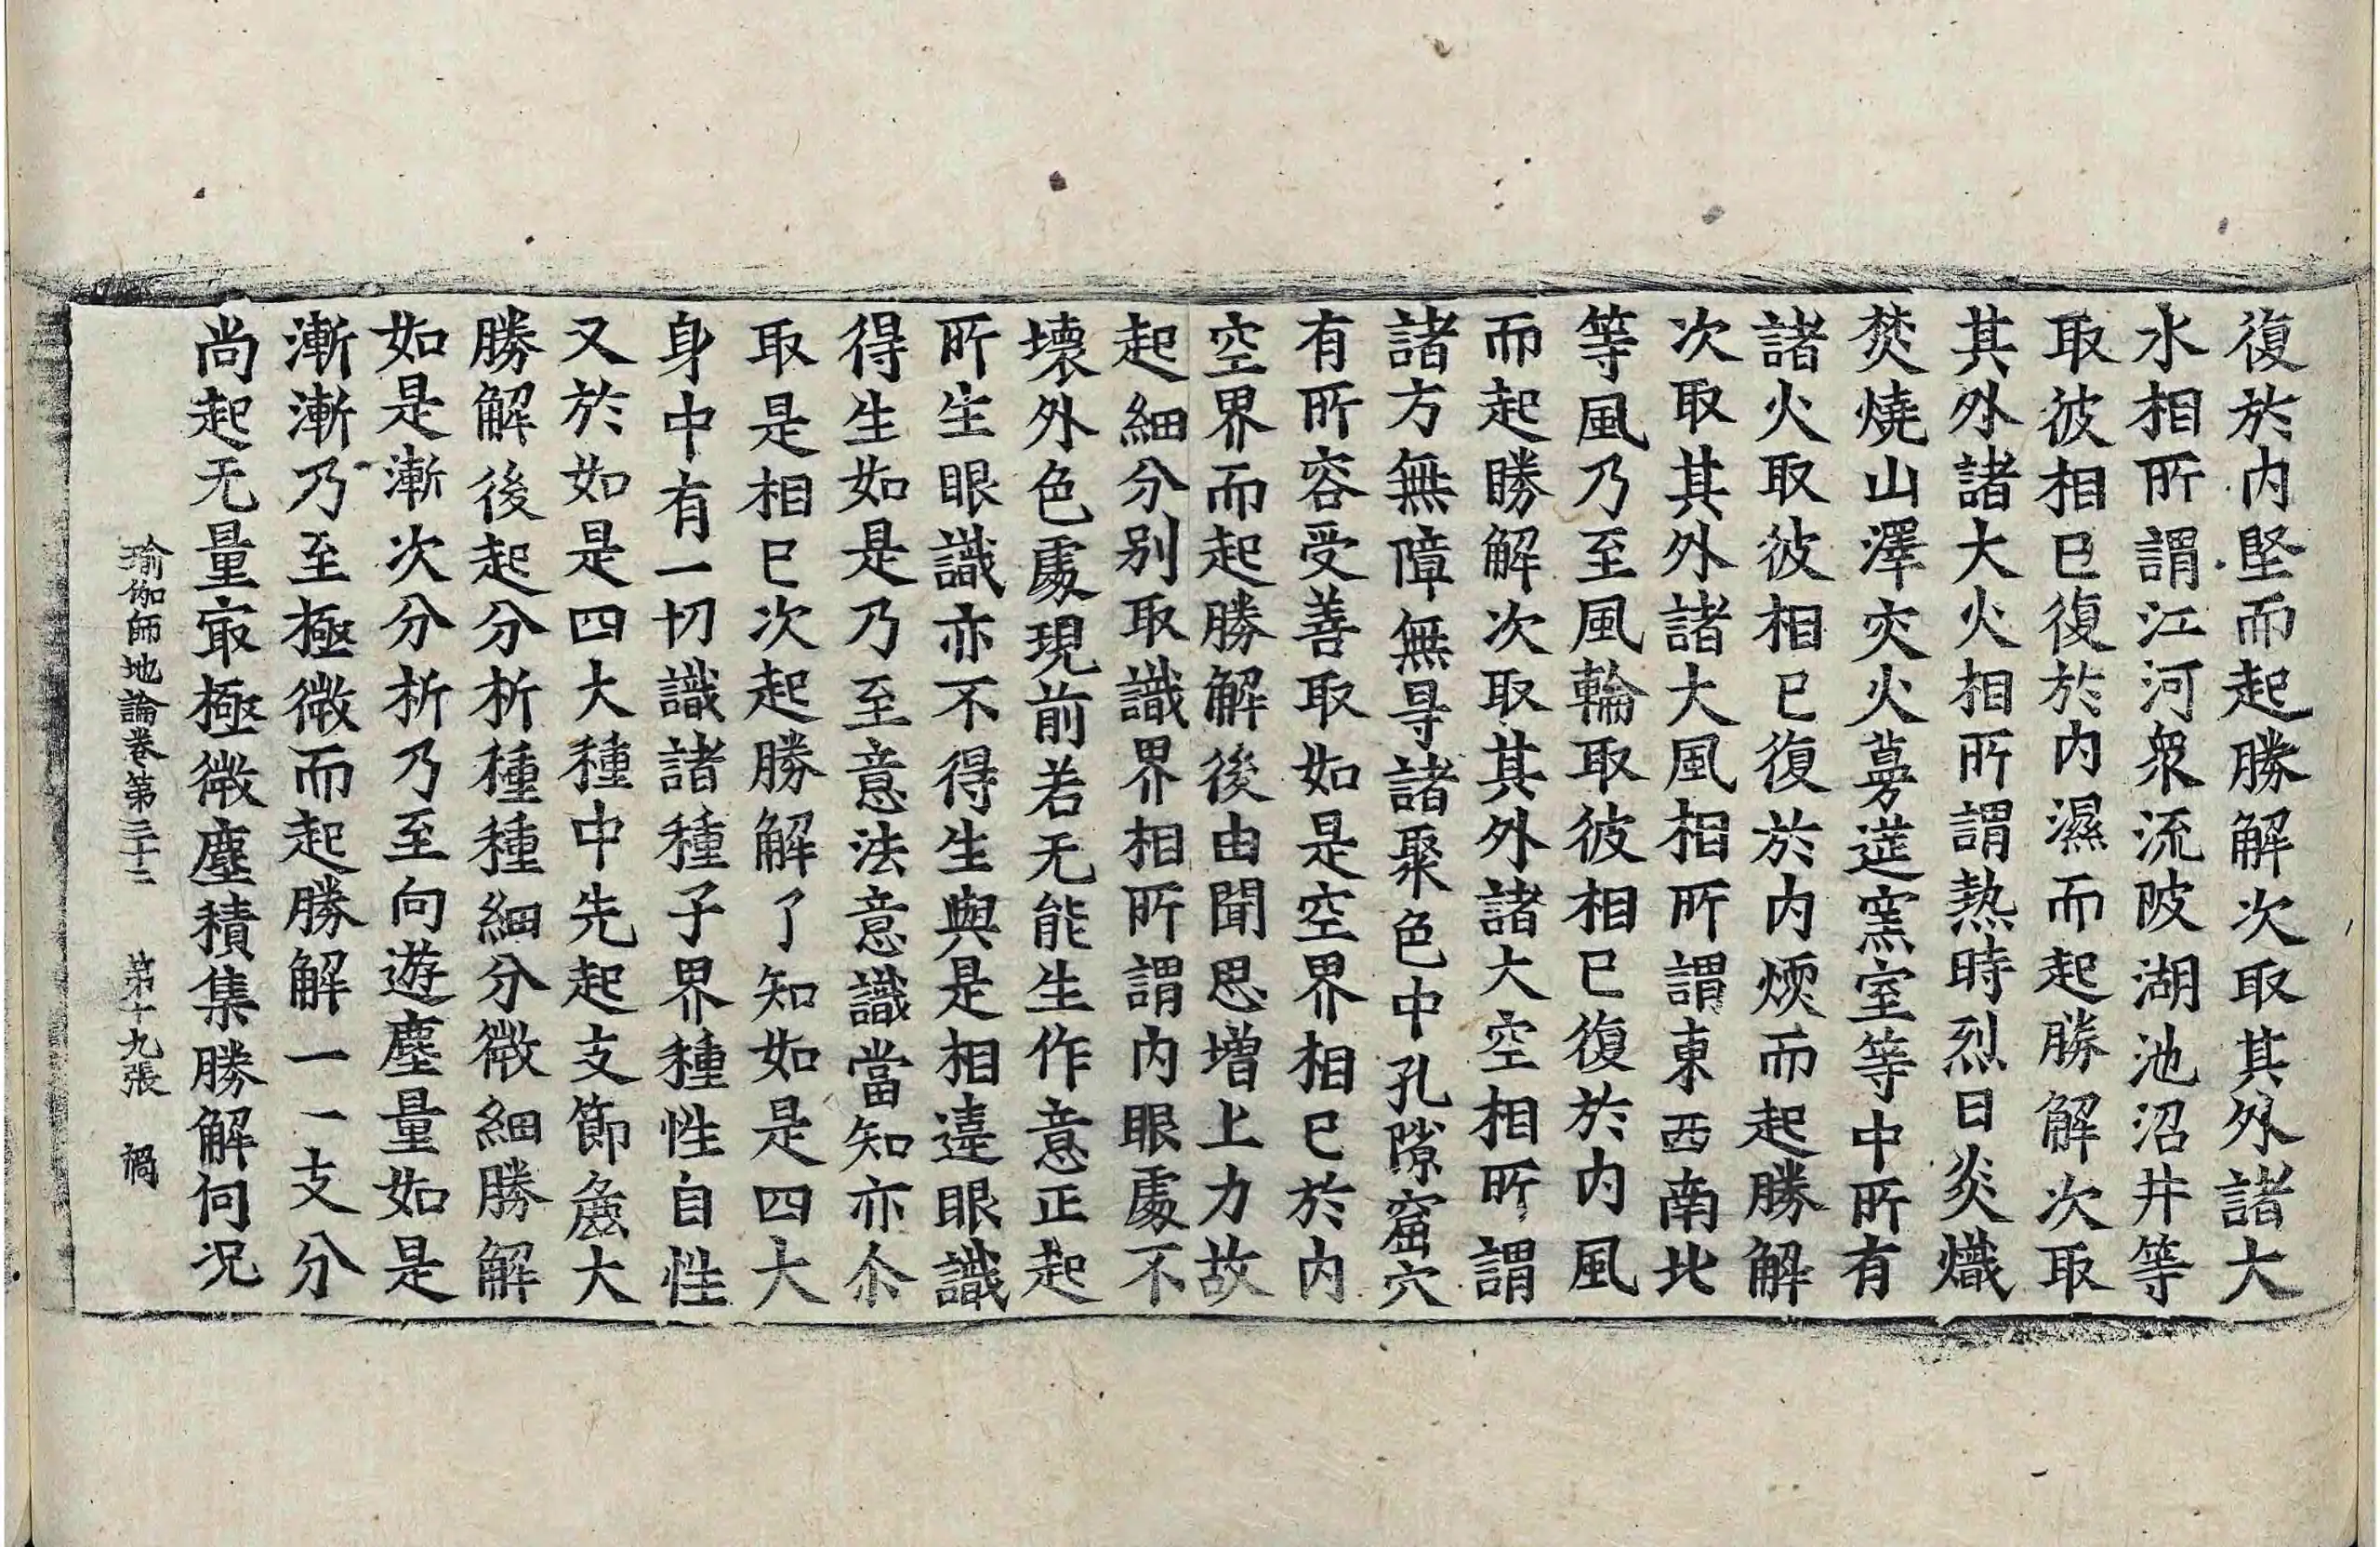 復於内堅而起勝解次取其外諸大
水相所謂江河衆流陂湖池沼井等
取彼相已復於内濕而起勝解次取
其外諸大火相所謂熱時烈日炎熾
焚燒山澤灾火蔓莚窯室等中所有
諸火取彼相已復於内煗而起勝解
次取其外諸大風相所謂東西南北
等風乃至風輪取彼相已復於内風
而起勝解次取其外諸大空相所謂
諸方無障無㝵諸聚色中孔隙窟穴
有所容受善取如是空界相已於内
空界而起勝解後由聞思增上力故
起細分別取識界相所謂内眼處不
壞外色處現前若无能生作意正起
所生眼識亦不得生與是相違眼識
得生如是乃至意法意識當知亦尒
取是相已次起勝解了知如是四大
身中有一切識諸種子界種性自性
又於如是四大種中先起支節麁大
勝解後起分析種種細分微細勝解
如是漸次分析乃至向遊塵量如是
漸漸乃至極微而起勝解一一支分
尚起无量冣極微塵積集勝解何况
瑜伽師地論卷第三十二 第十九張 禍